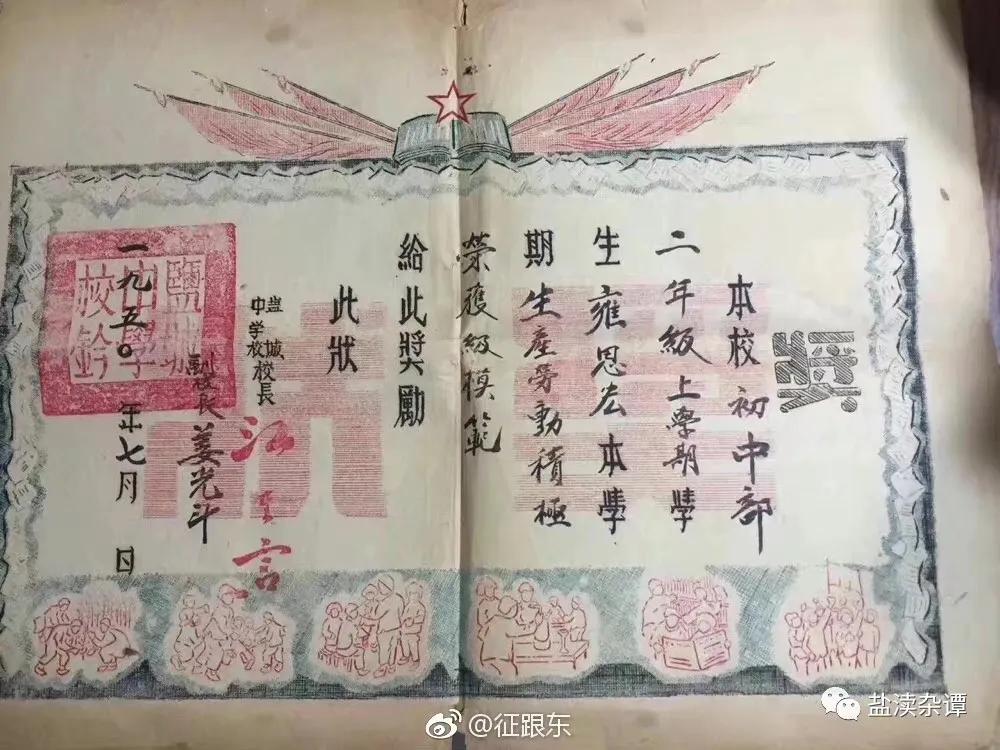 獎
本校初中部
二年級上學期學
生雍思宏本學
期生產勞動積極
榮獲級模範
給此獎勵
此狀
盐城
中学校校長
江重言
副校長姜光斗
一九五〇年七月 日
鹽城
中學
校鈐
@征跟东
盐渎杂谭